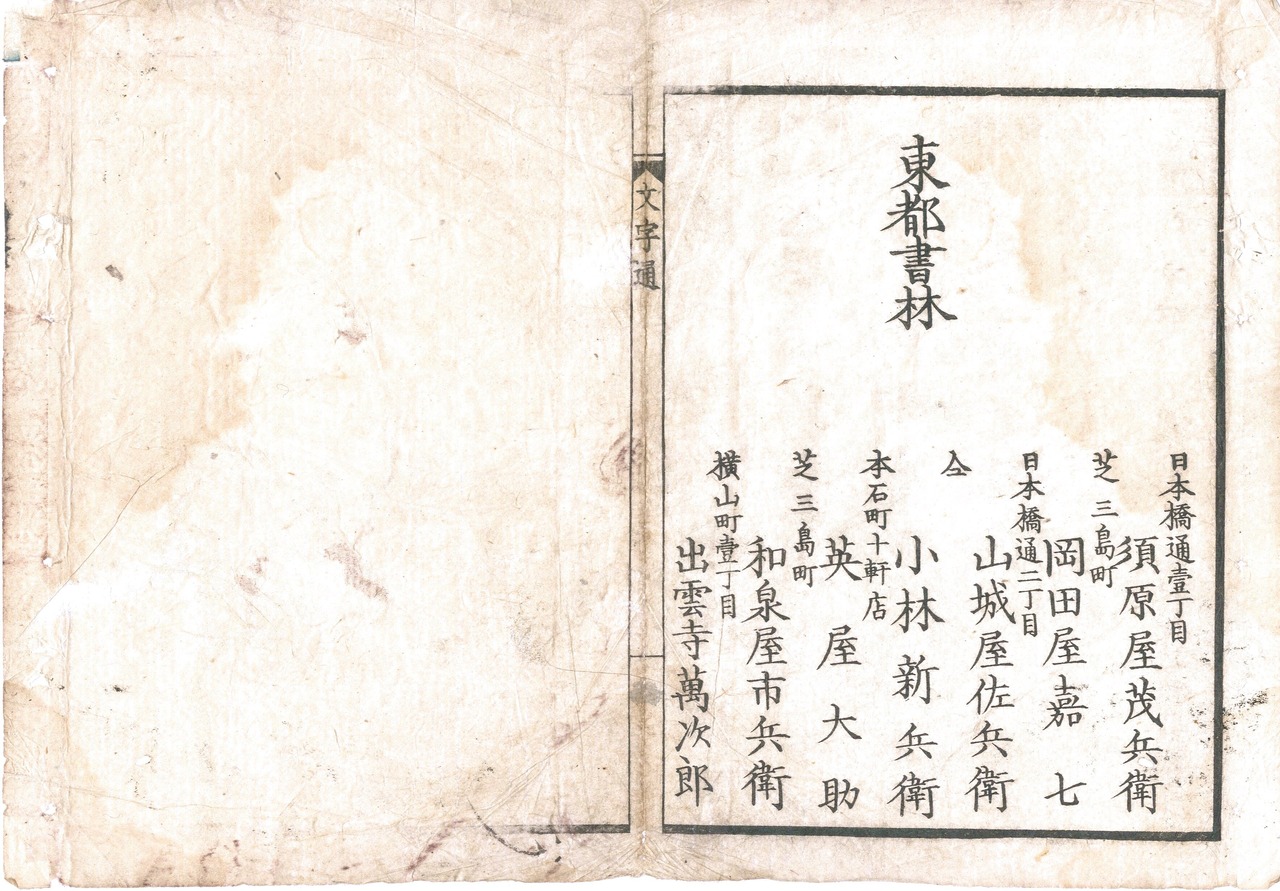 東都書林
日本橋通壹丁目
須原屋茂兵衛
芝三島町
岡田屋嘉七
日本橋通二丁目
山城屋佐兵衛
仝
小林新兵衛
本石町十軒店
英屋大助
芝三島町
和泉屋市兵衛
橫山町壹丁目
出雲寺萬次郎
文字通